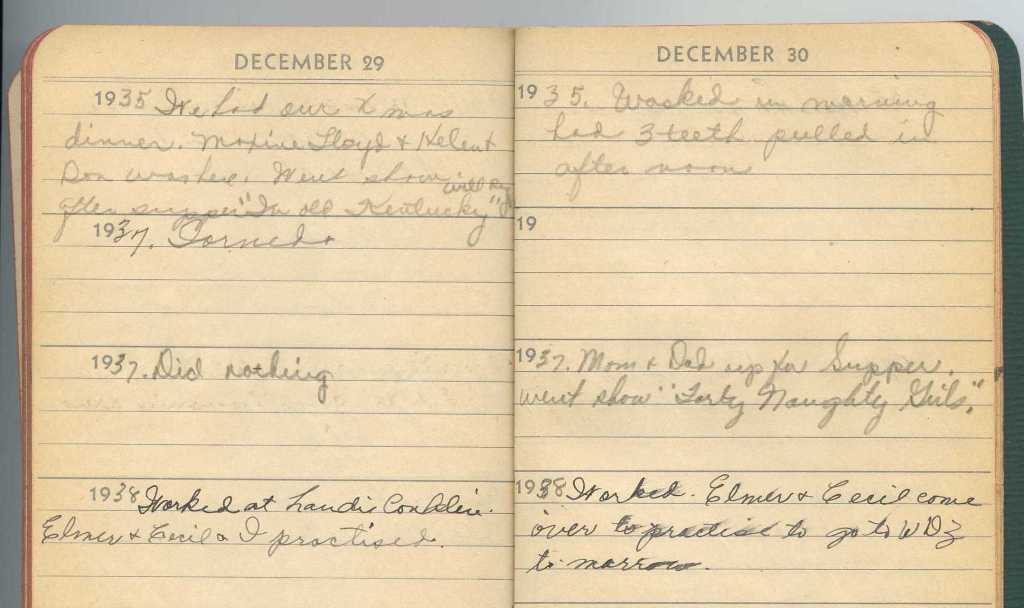 DECEMBER 29
1935 We had our X mas
dinner. Maxine Lloyd & Helen &
Don was here. Went show Will Rogers
after supper "In old Kentucky"
1937.
1937. Did nothing
1938 Worked at Landis Conklin.
Elmer & Cecil & I practised.
DECEMBER 30
1935. Worked in morning
had 3 teeth pulled in
after noon
19
1937. Mom & Dad up for Supper.
went show "Forty Naughty Girls."
1938 Worked. Elmer & Cecil come
over to practise to go to WDZ
to marrow.